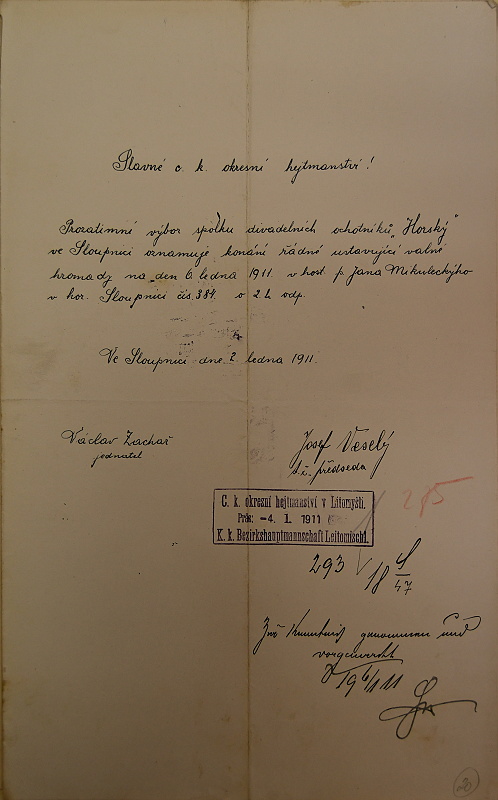 Slavné c. k. okresní hejtmanství!
Prozatimné výbor spolku divadelních ochotníků „Horský“
ve Sloupnici oznamuje konání řádné ustavující valné
hromady na den 6 ledna 1911. v host. p. Jana Mikuleckýho
v hor. Sloupnici čís. 384. o 2 h. odp.
Ve Sloupnici dne 2 ledna 1911.
Václav Zachař
jednatel
Josef Veselý
t. č. předseda
C. k. okresní hejtmanství v Litomyšli.
Präs: -4. 1. 1911
K. k. Bezirkshauptmannschaft Leitomischl.
293
18
47
Zur Kenntnis genommen und
vorgemerkt
20